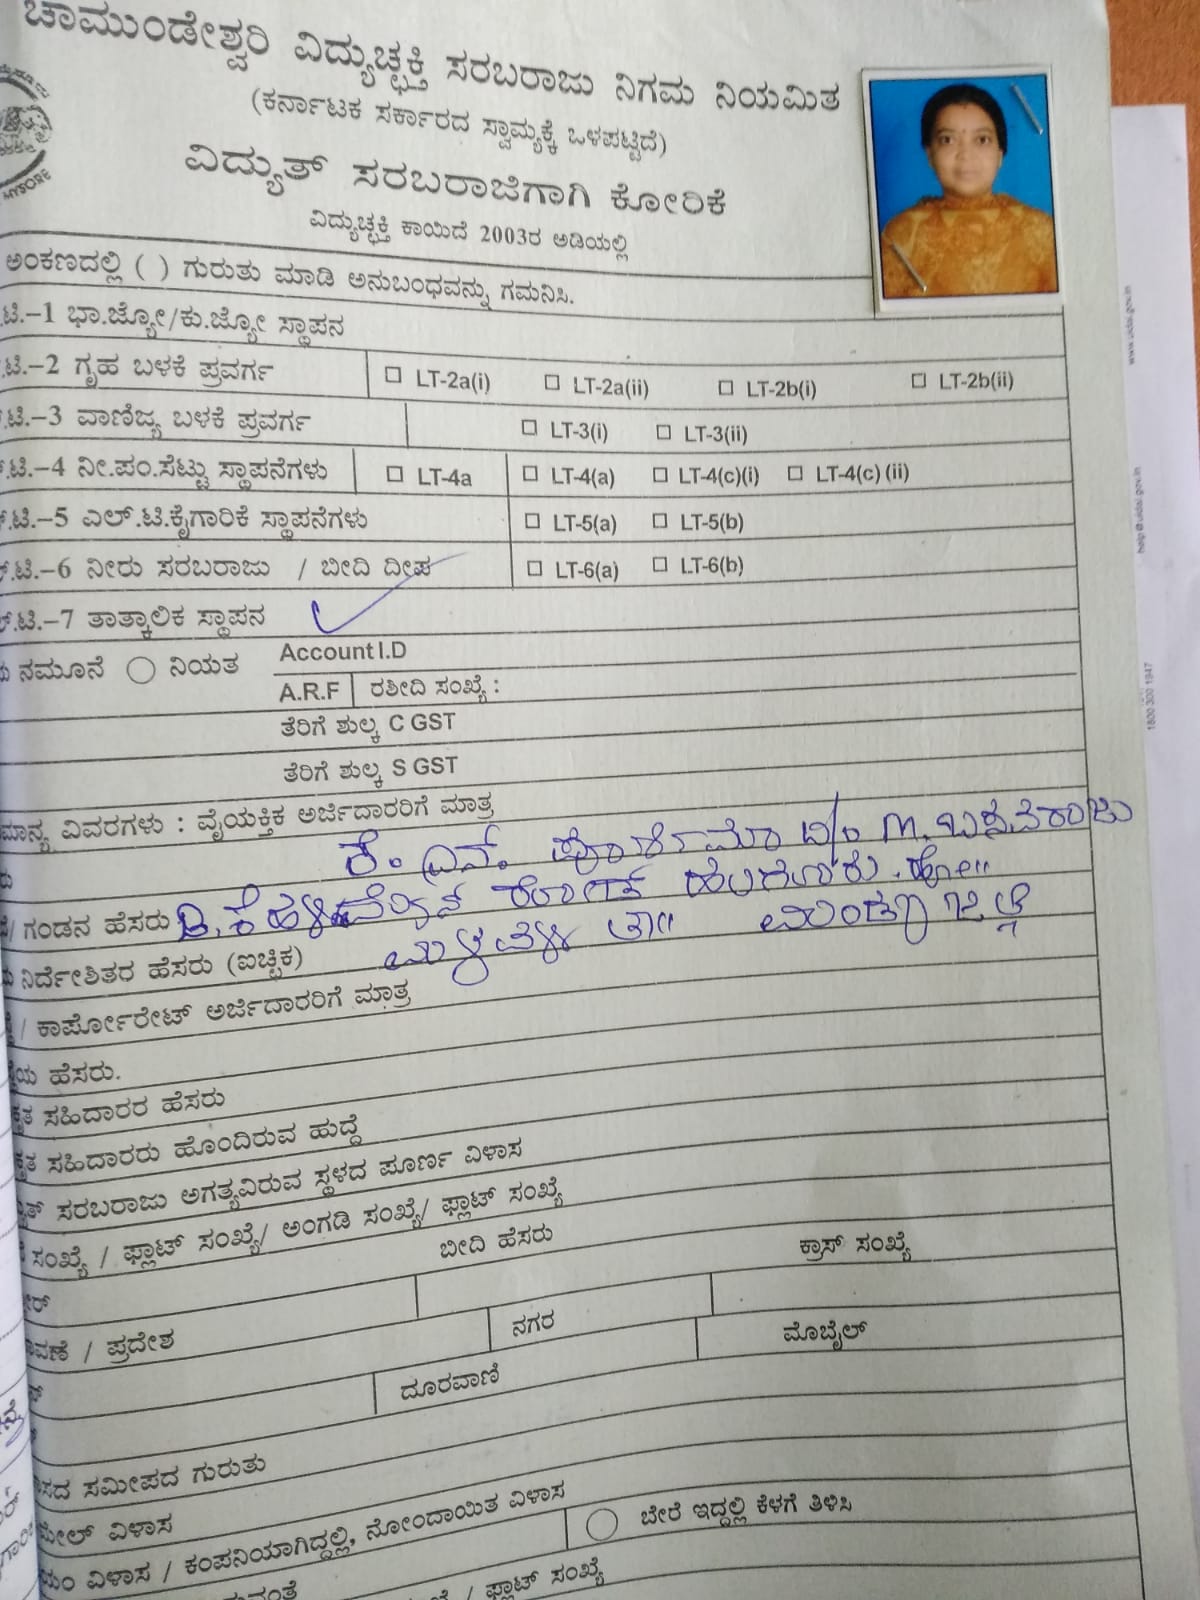 ಚಾಮುಂಡೇಶ್ವರಿ ವಿದ್ಯುಚ್ಛಕ್ತಿ ಸರಬರಾಜು ನಿಗಮ ನಿಯಮಿತ
(ಕರ್ನಾಟಕ ಸರ್ಕಾರದ ಸ್ವಾಮ್ಯಕ್ಕೆ ಒಳಪಟ್ಟಿದೆ)
MYSORE
ವಿದ್ಯುತ್ ಸರಬರಾಜಿಗಾಗಿ ಕೋರಿಕೆ
ವಿದ್ಯುಚ್ಛಕ್ತಿ ಕಾಯಿದೆ 2003ರ ಅಡಿಯಲ್ಲಿ
ಅಂಕಣದಲ್ಲಿ ( ) ಗುರುತು ಮಾಡಿ ಅನುಬಂಧವನ್ನು ಗಮನಿಸಿ.
.ಟಿ.-1 ಭಾ.ಜ್ಯೋ/ಕು.ಜ್ಯೋ ಸ್ಥಾಪನ
.ಟಿ.-2 ಗೃಹ ಬಳಕೆ ಪ್ರವರ್ಗ LT-2a(i) LT-2a(ii) LT-2b(i) LT-2b(ii)
.ಟಿ.-3 ವಾಣಿಜ್ಯ ಬಳಕೆ ಪ್ರವರ್ಗ LT-3(i) LT-3(ii)
.ಟಿ.-4 ನೀ.ಪಂ.ಸೆಟ್ಟು ಸ್ಥಾಪನೆಗಳು LT-4a LT-4(a) LT-4(c)(i) LT-4(c) (ii)
.ಟಿ.-5 ಎಲ್.ಟಿ.ಕೈಗಾರಿಕೆ ಸ್ಥಾಪನೆಗಳು LT-5(a) LT-5(b)
.ಟಿ.-6 ನೀರು ಸರಬರಾಜು / ಬೀದಿ ದೀಪ LT-6(a) LT-6(b)
.ಟಿ.-7 ತಾತ್ಕಾಲಿಕ ಸ್ಥಾಪನ
ನಮೂನೆ ನಿಯತ Account I.D
A.R.F ರಶೀದಿ ಸಂಖ್ಯೆ :
ತೆರಿಗೆ ಶುಲ್ಕ C GST
ತೆರಿಗೆ ಶುಲ್ಕ S GST
ಮಾನ್ಯ ವಿವರಗಳು : ವೈಯಕ್ತಿಕ ಅರ್ಜಿದಾರರಿಗೆ ಮಾತ್ರ
ಕೆ. ಎನ್. M. ಬಸವರಾಜು
ಗಂಡನ ಹೆಸರು
ನಿರ್ದೇಶಿತರ ಹೆಸರು (ಐಚ್ಛಿಕ) ಮಳವಳ್ಳಿ ತಾ|| ಮಂಡ್ಯ ಜಿಲ್ಲೆ
/ ಕಾರ್ಪೋರೇಟ್ ಅರ್ಜಿದಾರರಿಗೆ ಮಾತ್ರ
ಯ ಹೆಸರು.
ಕೃತ ಸಹಿದಾರರ ಹೆಸರು
ಕೃತ ಸಹಿದಾರರು ಹೊಂದಿರುವ ಹುದ್ದೆ
ಸರಬರಾಜು ಅಗತ್ಯವಿರುವ ಸ್ಥಳದ ಪೂರ್ಣ ವಿಳಾಸ
ಸಂಖ್ಯೆ / ಫ್ಲಾಟ್ ಸಂಖ್ಯೆ/ ಅಂಗಡಿ ಸಂಖ್ಯೆ/ ಫ್ಲಾಟ್ ಸಂಖ್ಯೆ
ಬೀದಿ ಹೆಸರು ಕ್ರಾಸ್ ಸಂಖ್ಯೆ
ಾವಣೆ / ಪ್ರದೇಶ ನಗರ ಮೊಬೈಲ್
ದೂರವಾಣಿ
ಸದ ಸಮೀಪದ ಗುರುತು
ಮೇಲ್ ವಿಳಾಸ
ಯಂ ವಿಳಾಸ / ಕಂಪನಿಯಾಗಿದ್ದಲ್ಲಿ, ನೋಂದಾಯಿತ ವಿಳಾಸ ಬೇರೆ ಇದ್ದಲ್ಲಿ ಕೆಳಗೆ ತಿಳಿಸಿ
/ ಫ್ಲಾಟ್ ಸಂಖ್ಯೆ
www.uidai.gov.in
help@uidai.gov.in
1800 300 1947